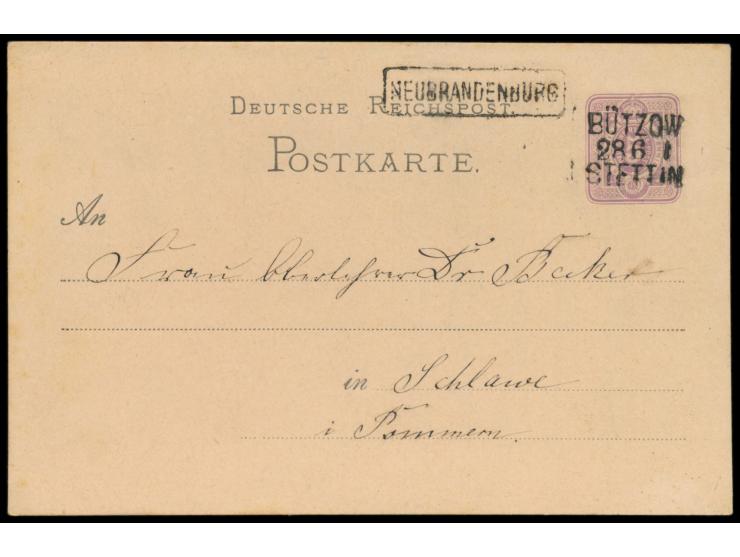 NEUBRANDENBURG
DEUTSCHE REICHSPOST.
POSTKARTE.
BÜTZOW
28 6 I
STETTIN
An
Frau Oberlehrer Dr Becker
in Schlawe
i Pommern.